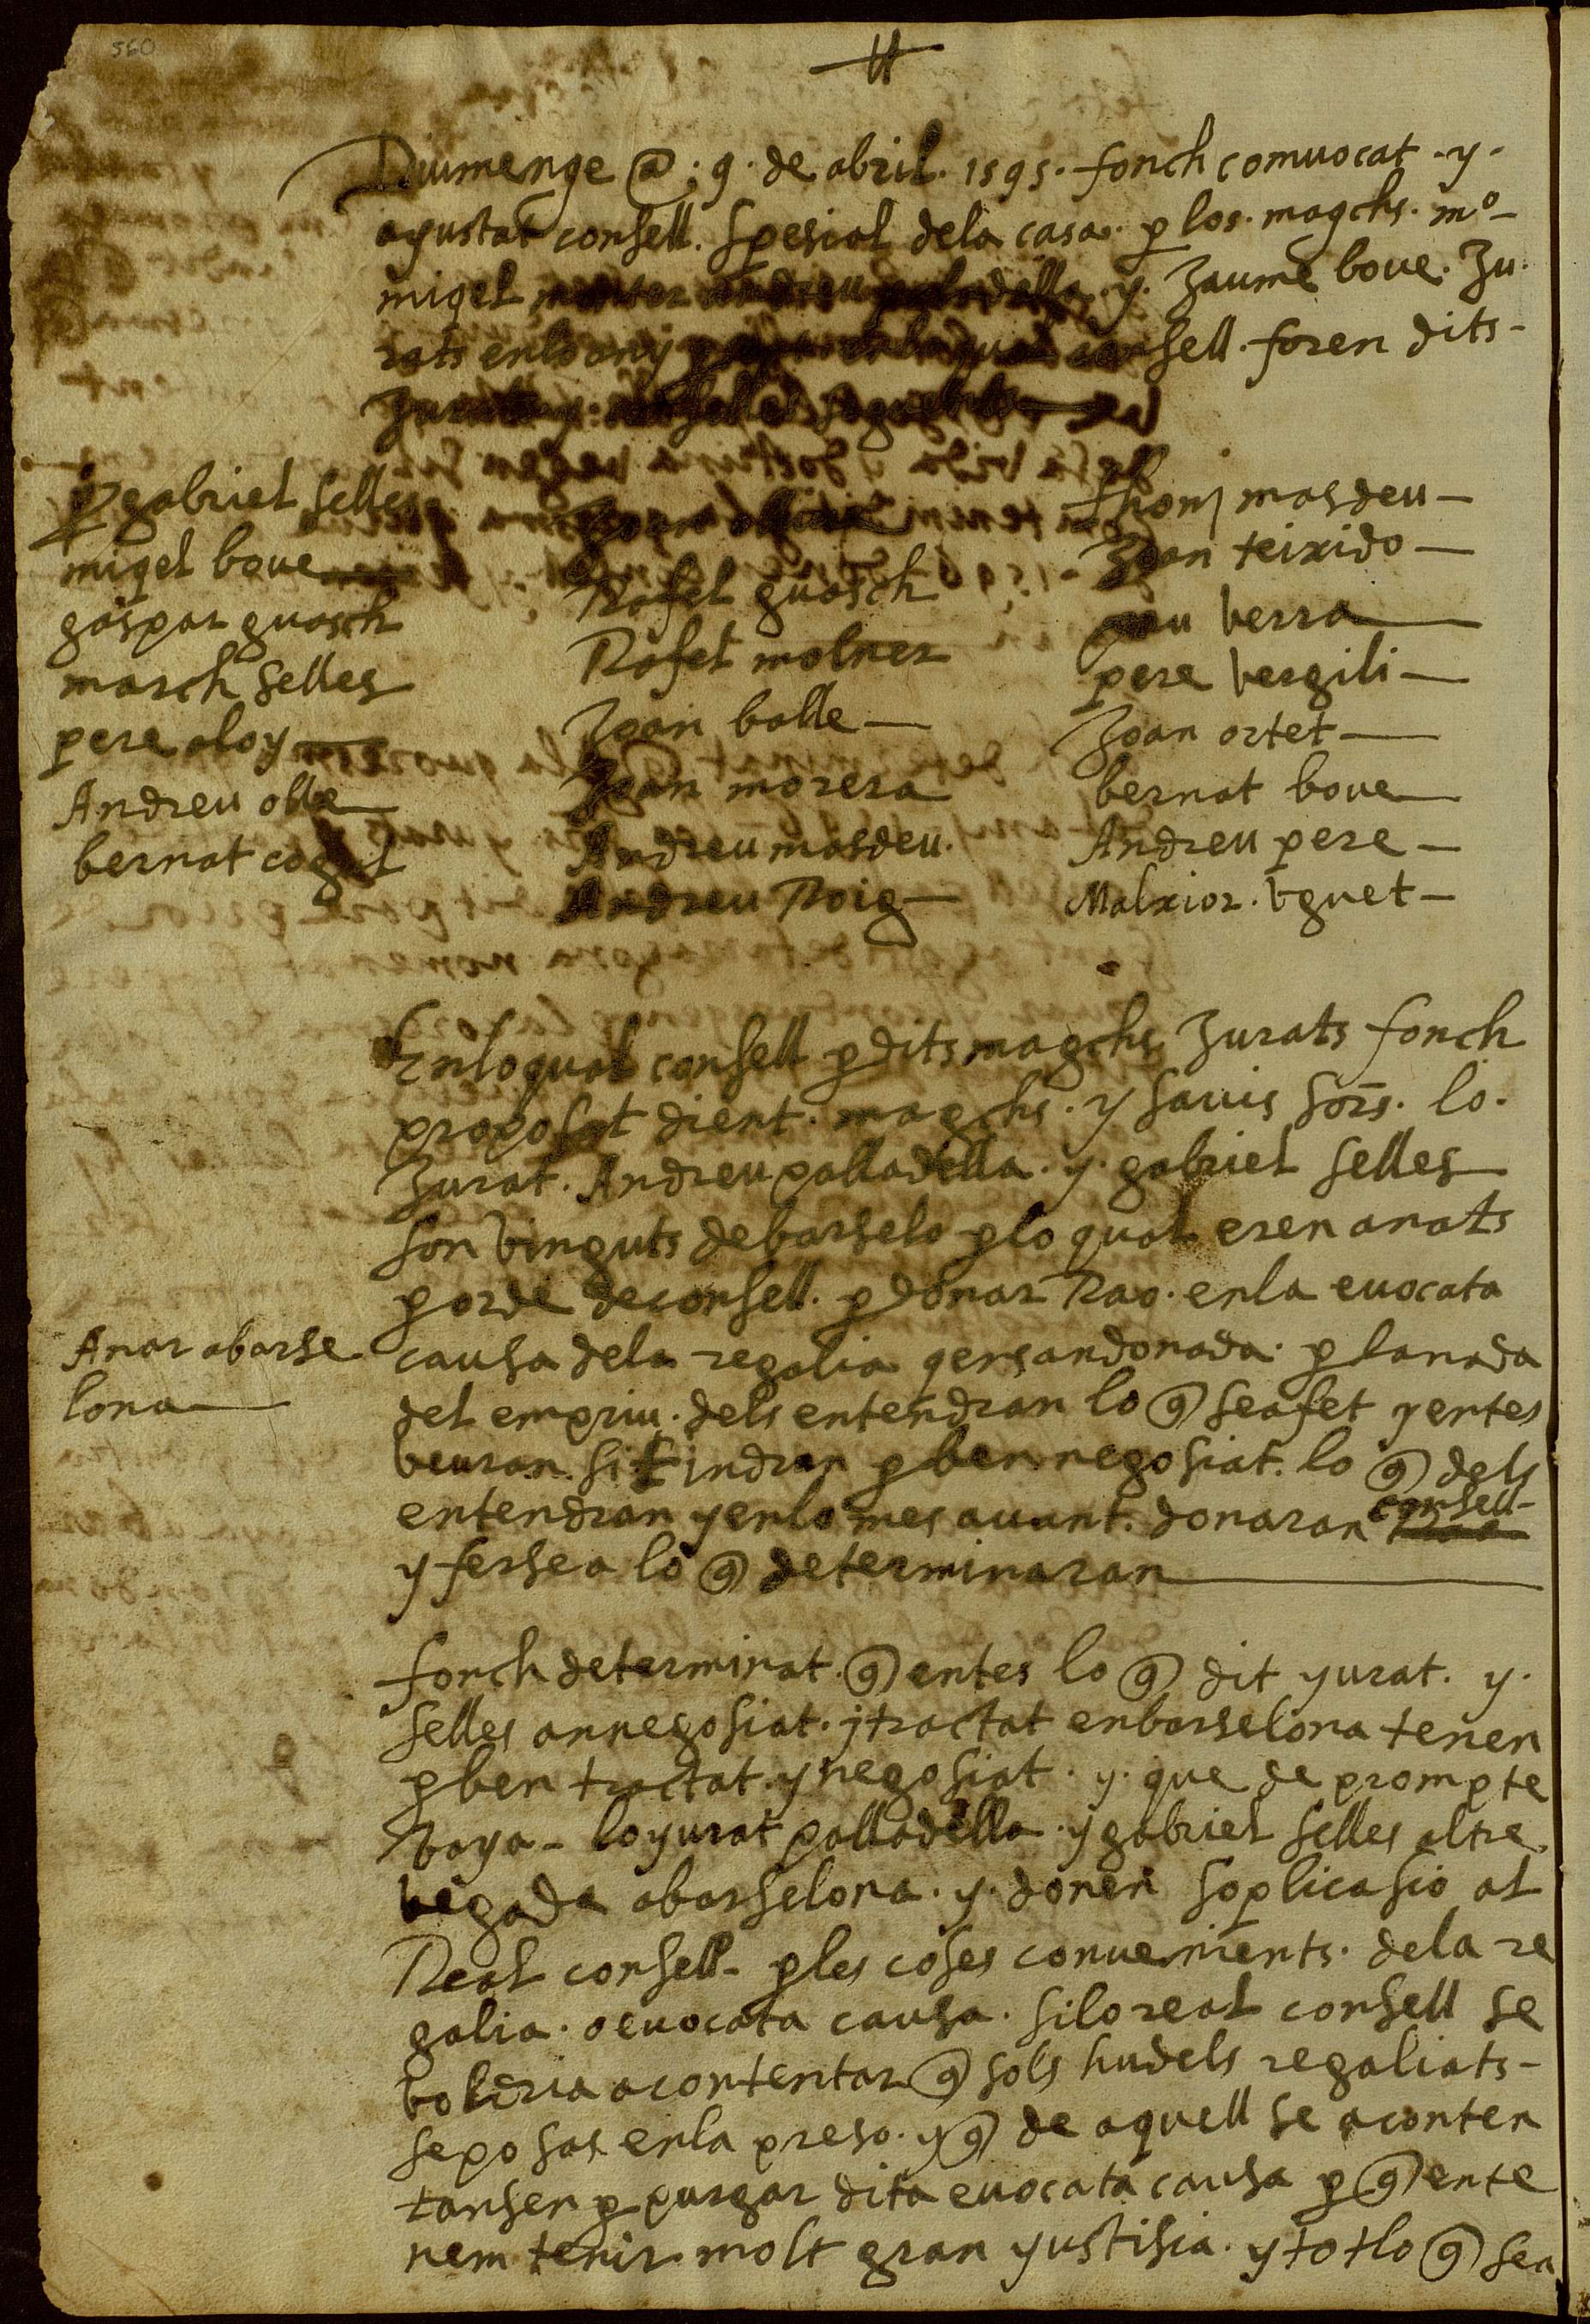 560
Diumenge @ 9 de abril 1595 fonch comvocat y
ayustat consell spesial dela casa p los magchs mº
migel andreu palladella y Jaume boue Ju
rats enlo any consell foren dits
Jurats y consellers seguents
p gabriel selles
miqel boue
gaspar guasch
march selles
pere aloy
Andreu olle
bernat coget
Joan
Rafel guasch
Rafel molner
Joan batle
Joan morera
Andreu masdeu
Andreu Roig
thomas masdeu
Joan teixido
pau berra
pere bergili
Joan ortet
bernat boue
Andreu pere
Malxior huguet
Enloqual consell p dits magchs Jurats fonch
proposat dient magchs y savis sors lo
Jurat Andreu palladella y gabriel selles
son binguts debarselo p lo qual eren anats
p orde deconsell p donar Rao enla euocata
causa dela regalia qersandonada p lanada
del empriu dels entendran lo q seafet y entes
beuran si tindran p ben negosiat lo q dels
entendran y enlo mes auant donaran consell
y ferse a lo q determinaran
Anar abarse
lona
fonch determinat q entes lo q dit yurat y
selles an negosiat y tractat enbarselona tenen
p ben tractat y negosiat y que de prompte
baya lo yurat palladella y gabriel selles altre
begada abarselona y donen soplicasio al
Real consell p les coses convenients dela re
galia o euocata causa si lo real consell se
boldria acontentar q sols hu dels regaliats
seposas enla preso y q de aquell se aconten
tansen p purgar dita euocata causa p q ente
nem tenir molt gran yustisia y tot lo q sea